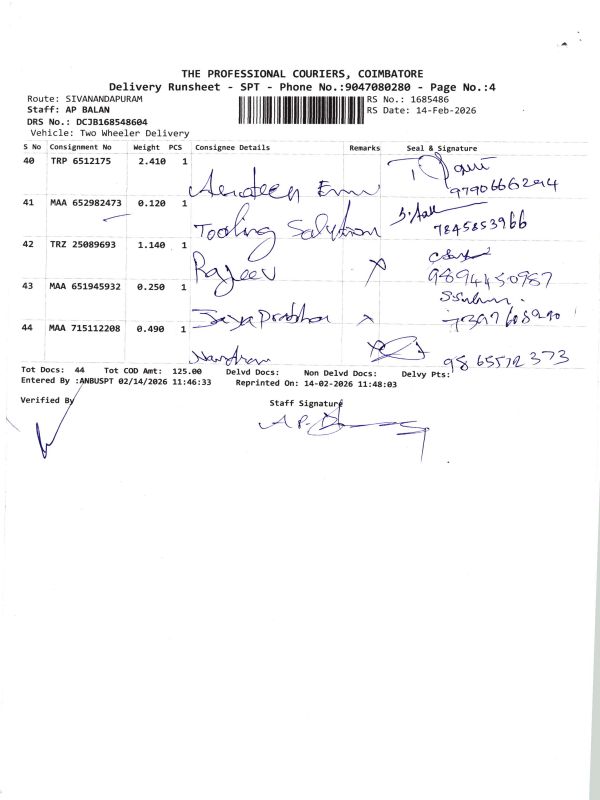 THE PROFESSIONAL COURIERS, COIMBATORE
Delivery Runsheet - SPT - Phone No.:9047080280 - Page No.:4
Route: SIVANANDAPURAM
Staff: AP BALAN
DRS No.: DCJB168548604
Vehicle: Two Wheeler Delivery
RS No.: 1685486
RS Date: 14-Feb-2026
S No Consignment No Weight PCS Consignee Details Remarks Seal & Signature
40 TRP 6512175 2.410 1
9790666294
41 MAA 652982473 0.120 1 Tooling 7845853966
42 TRZ 25089693 1.140 1 Rajeev 9894450987
43 MAA 651945932 0.250 1 Jayaprabha
44 MAA 715112208 0.490 1 9865572373
Tot Docs: 44 Tot COD Amt: 125.00 Delvd Docs: Non Delvd Docs: Delvy Pts:
Entered By :ANBUSPT 02/14/2026 11:46:33 Reprinted On: 14-02-2026 11:48:03
Verified By Staff Signature